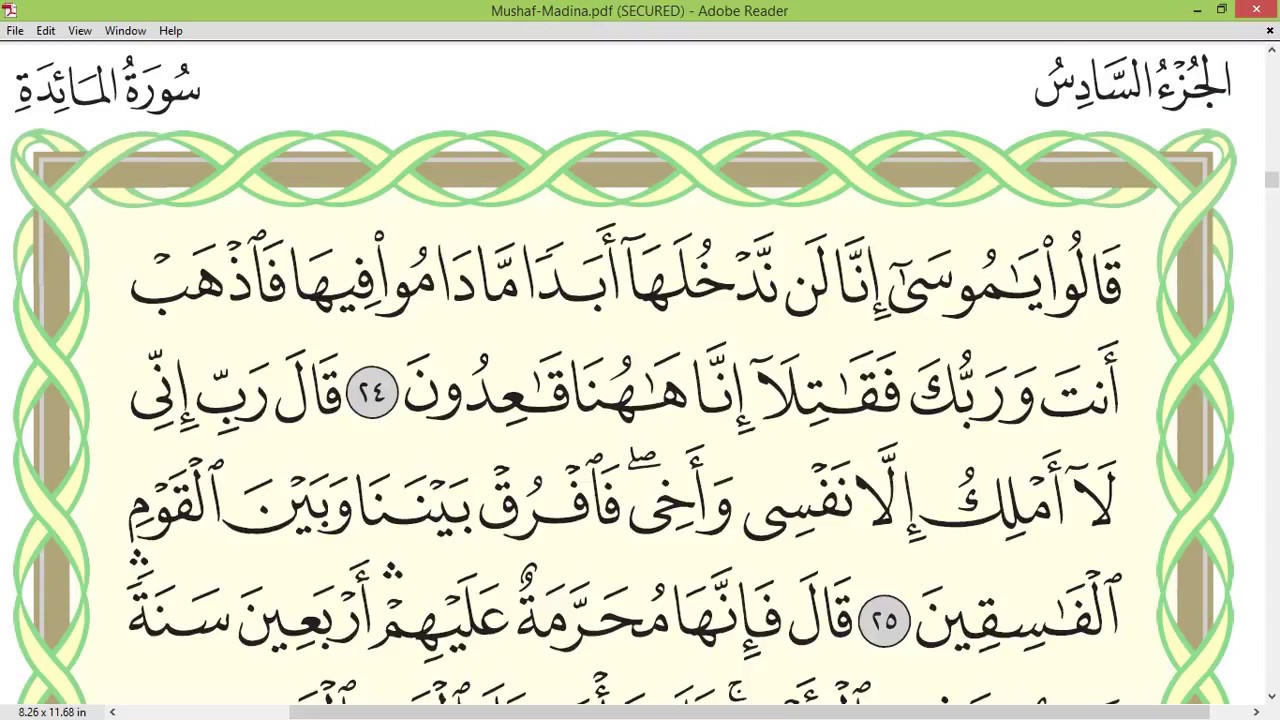 Mushaf-Madina.pdf (SECURED) - Adobe Reader
File Edit View Window Help
الجُزْءُ السَّادِسُ سُورَةُ المَائِدَةِ
قَالُوا۟ يَٰمُوسَىٰٓ إِنَّا لَن نَّدْخُلَهَآ أَبَدًا مَّا دَامُوا۟ فِيهَا فَٱذْهَبْ
أَنتَ وَرَبُّكَ فَقَٰتِلَآ إِنَّا هَٰهُنَا قَٰعِدُونَ ٢٤ قَالَ رَبِّ إِنِّى
لَآ أَمْلِكُ إِلَّا نَفْسِى وَأَخِى ۖ فَٱفْرُقْ بَيْنَنَا وَبَيْنَ ٱلْقَوْمِ
ٱلْفَٰسِقِينَ ٢٥ قَالَ فَإِنَّهَا مُحَرَّمَةٌ عَلَيْهِمْ ۛ أَرْبَعِينَ سَنَةً ۛ
8.26 x 11.68 in